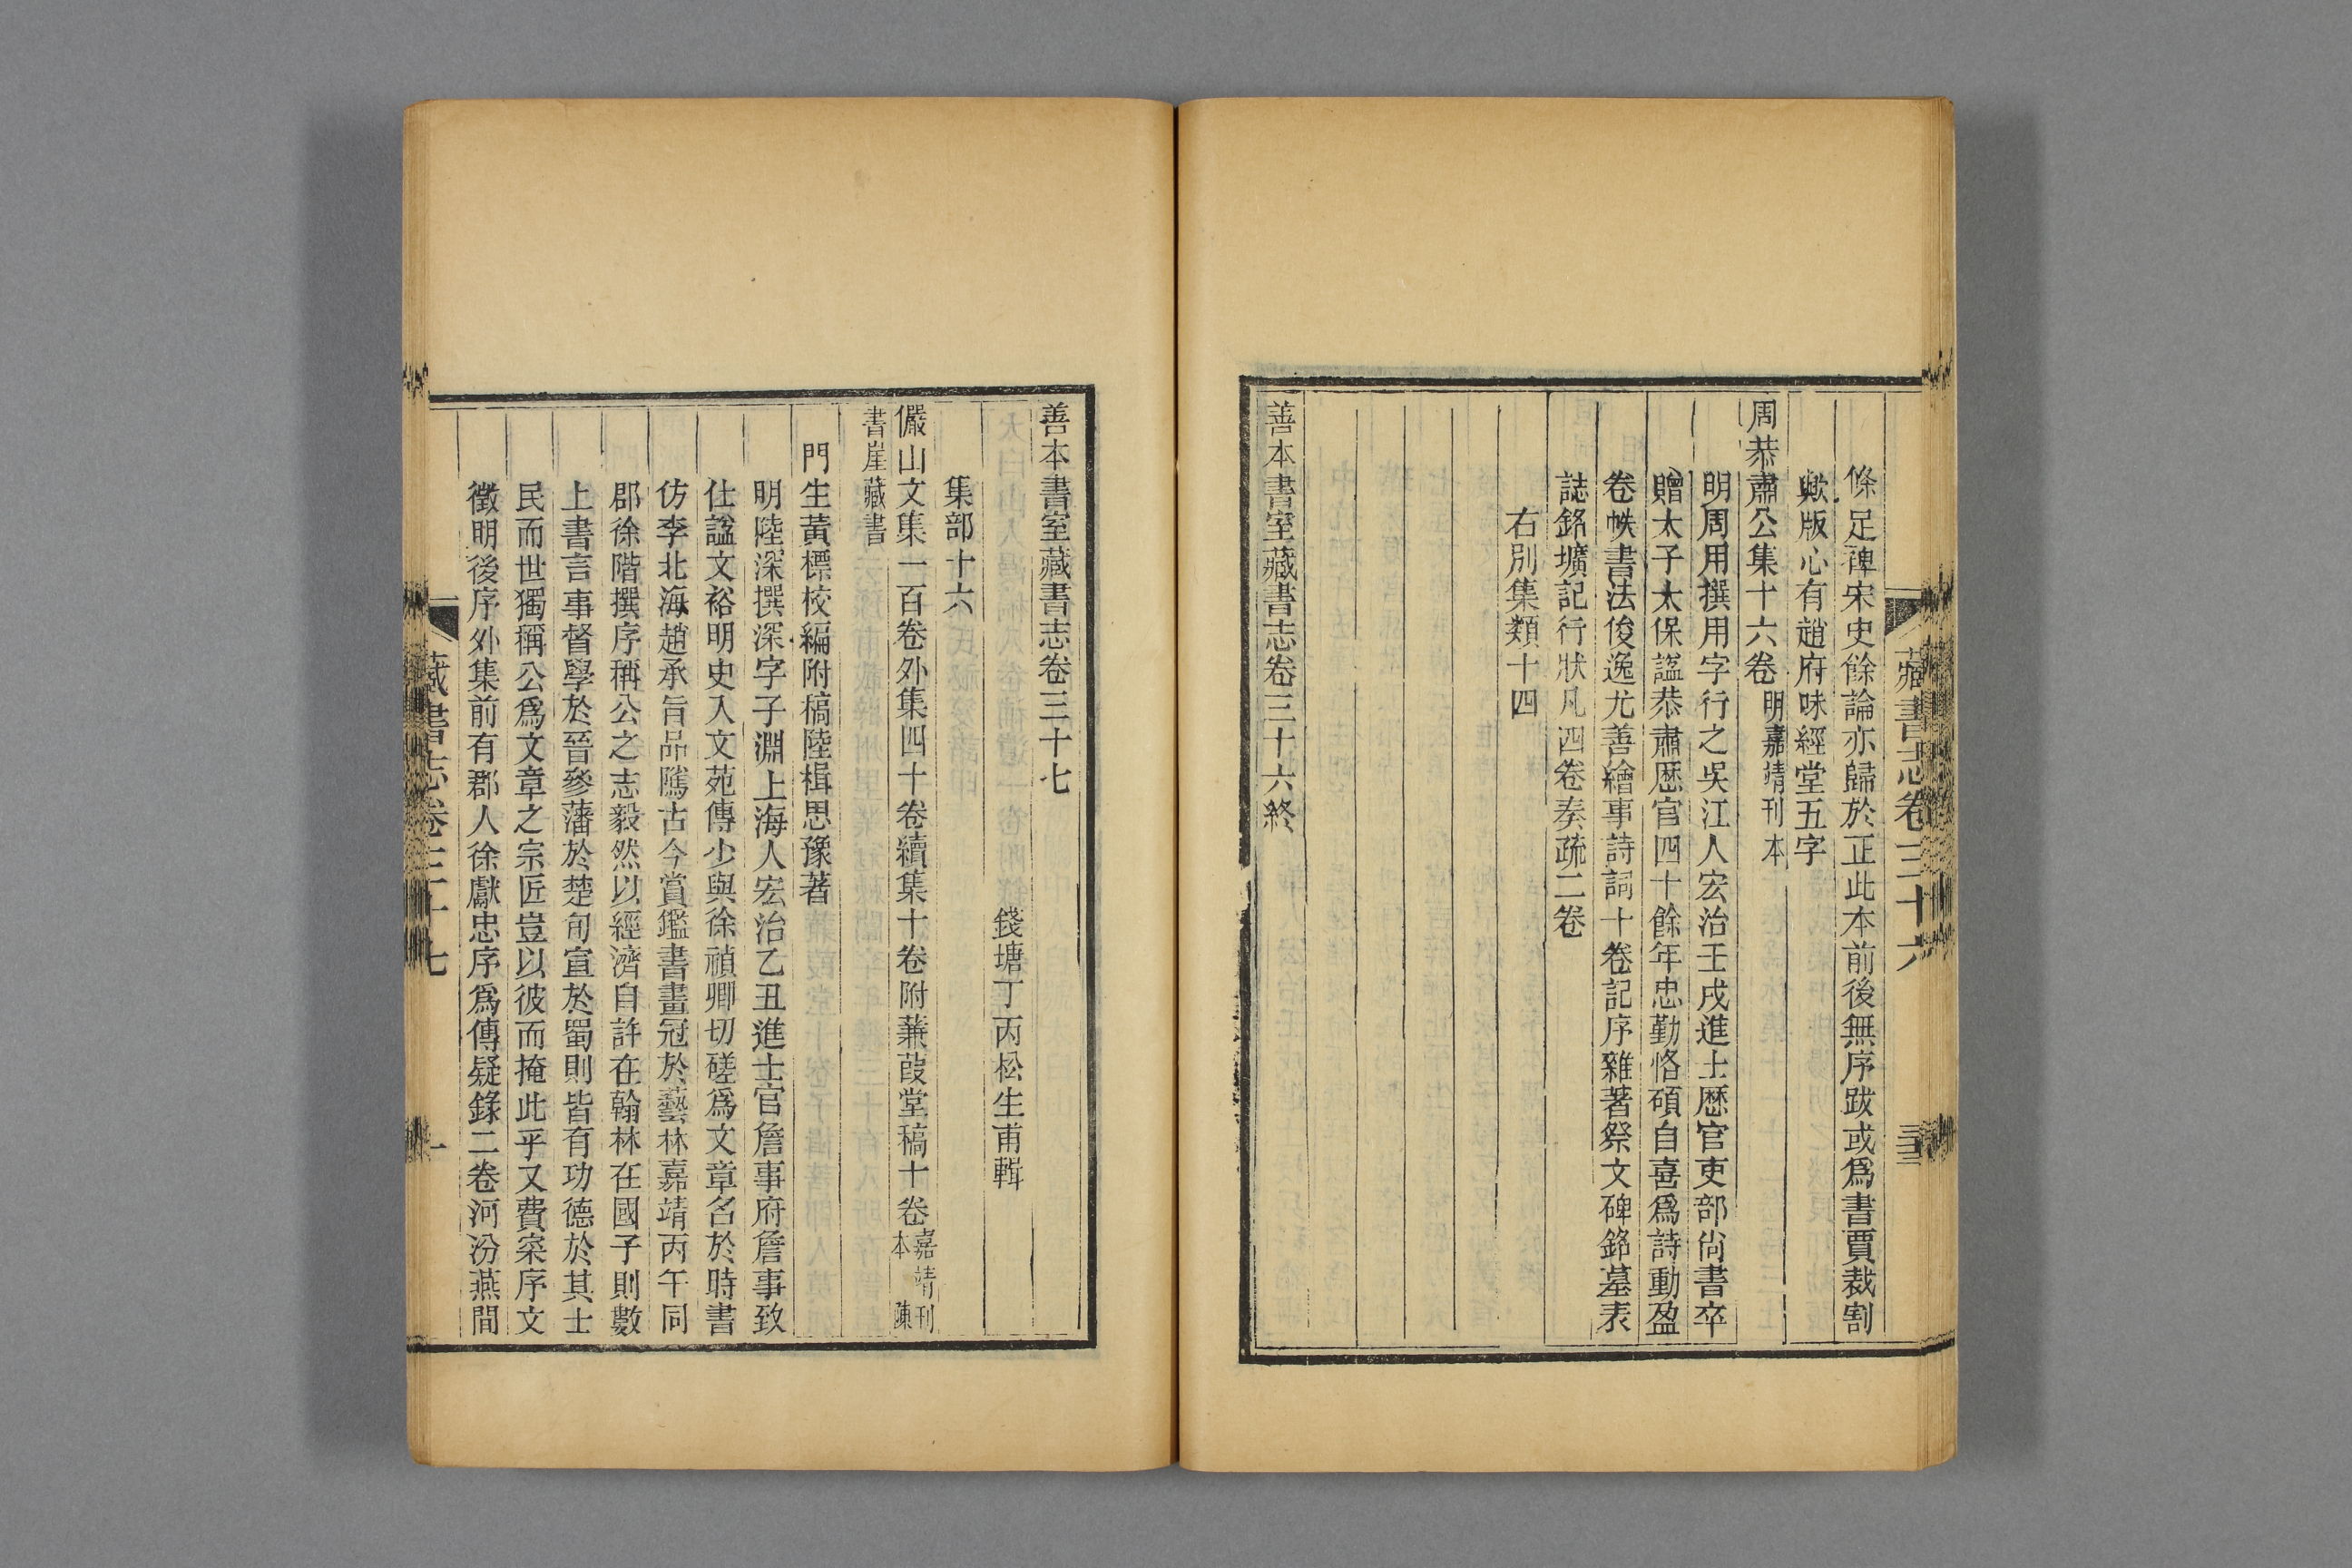 藏書志卷三十六
條足禆宋史餘論亦歸於正此本前後無序跋或爲書賈裁割
歟版心有趙府味經堂五字
周恭肅公集十六卷明嘉靖刊本
明周用撰用字行之吳江人宏治壬戌進士歴官吏部尙書卒
贈太子太保諡恭肅歴官四十餘年忠勤恪碩自喜爲詩動盈
卷帙書法俊逸尤善繪事詩詞十卷記序雜著祭文碑銘墓表
誌銘壙記行狀凡四卷奏疏二卷
右別集類十四
善本書室藏書志卷三十六終
善本書室藏書志卷三十七
錢塘丁丙松生甫輯
集部十六
儼山文集一百卷外集四十卷續集十卷附蒹葭堂稿十卷嘉靖刊本 陳
書崖藏書
門生黃標校編附稿陸楫思豫著
明陸深撰深字子淵上海人宏治乙丑進士官詹事府詹事致
仕諡文裕明史入文苑傳少與徐禎卿切磋爲文章名於時書
仿李北海趙承旨品隲古今賞鑑書畫冠於藝林嘉靖丙午同
郡徐階撰序稱公之志毅然以經濟自許在翰林在國子則數
上書言事督學於晉參藩於楚旬宣於蜀則皆有功德於其士
民而世獨稱公爲文章之宗匠豈以彼而掩此乎又費寀序文
徵明後序外集前有郡人徐獻忠序爲傳疑錄二卷河汾燕閒
藏書志卷三十七
一